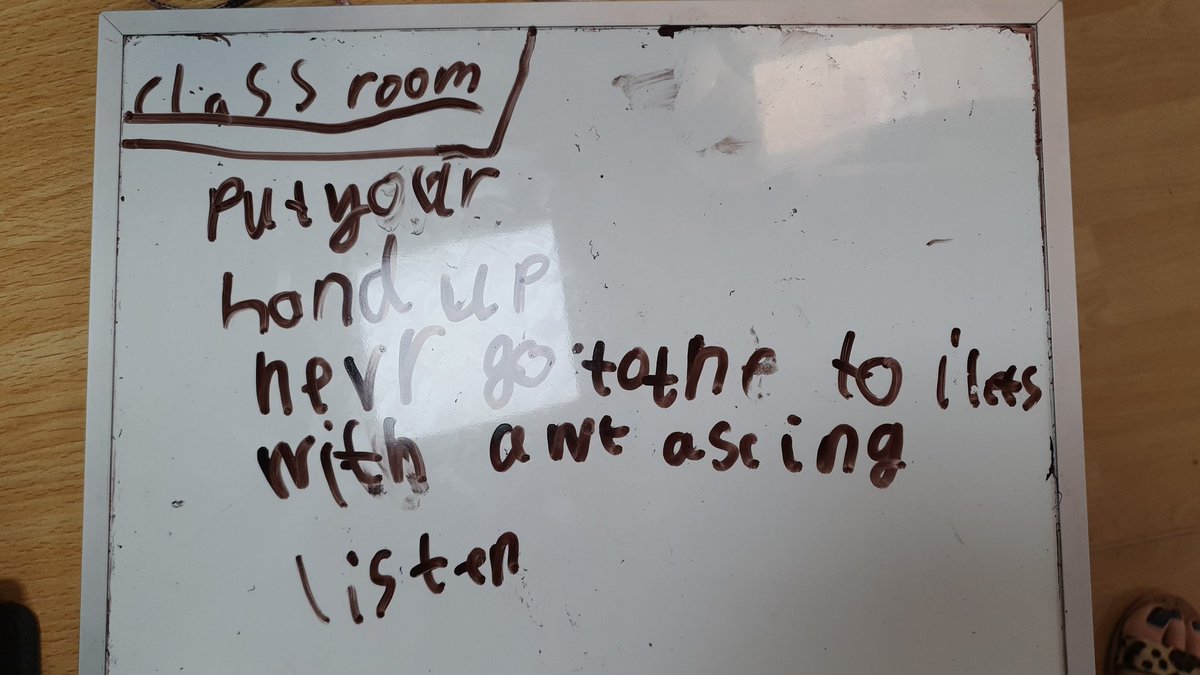 class room
Put your
hand up
nevr go to the to ilets
with awt ascing
listen